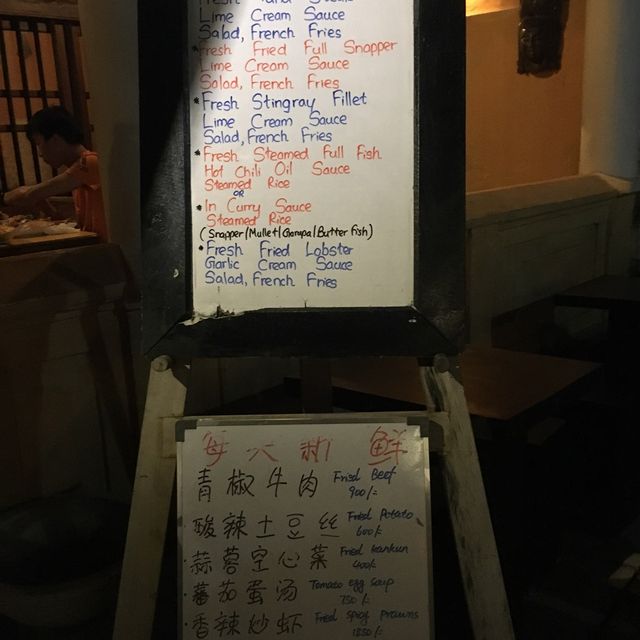 Lime Cream Sauce
Salad, French Fries
*Fresh Fried Full Snapper
Lime Cream Sauce
Salad, French Fries
*Fresh Stingray Fillet
Lime Cream Sauce
Salad, French Fries
*Fresh Steamed Full Fish
Hot Chili Oil Sauce
Steamed Rice
OR
*In Curry Sauce
Steamed Rice
(Snapper/Mullet/Garupa/Butter fish)
*Fresh Fried Lobster
Garlic Cream Sauce
Salad, French Fries
每天新鲜
青椒牛肉 Fried Beef
900/=
酸辣土豆丝 Fried Potato
600/-
蒜蓉空心菜 Fried Kankun
400/-
蕃茄蛋汤 Tomato Egg Soup
750/-
香辣炒虾 Fried spicy Prawns